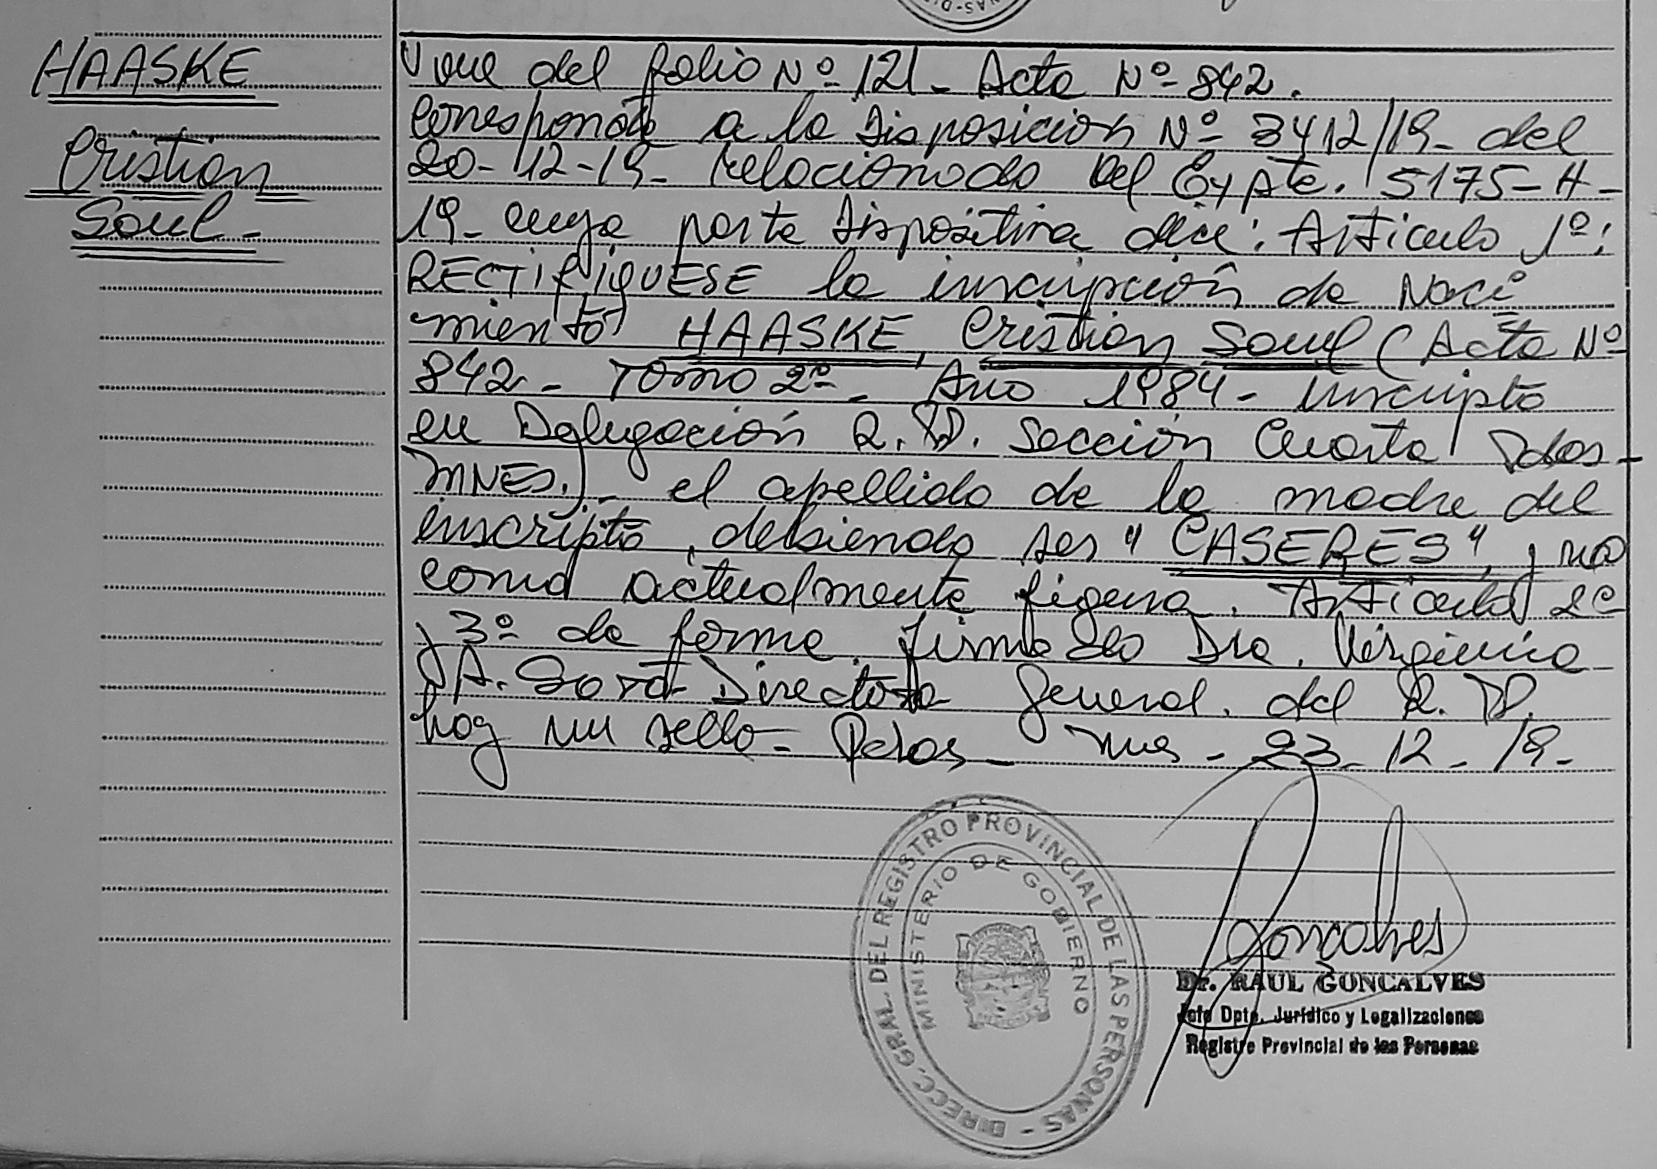 HAASKE
Cristian
Saul -
Viene del folio Nº 121 - Acta Nº 842.
Corresponde a la Disposición Nº 3412/19 - del
20-12-19 - relacionado Del Expte. 5175-H-
19 - cuya parte dispositiva dice: Artículo 1º:
RECTIFÍQUESE la inscripción de Naci
miento HAASKE, Cristian Saul (Acta Nº
842 - Tomo 2º - Año 1984 - inscripto
en Delegación R.P. Sección Cuarta Pdas -
MNES.) - el apellido de la madre del
inscripto, debiendo ser "CASERES", y no
como actualmente figura. Artículo 2º
y 3º de forma. firmado Dra. Virginia
A. Directora General. del R.P.
hay un sello - Pdas - mes - 23-12-19 -
DIRECC. GRAL. DEL REGISTRO PROVINCIAL DE LAS PERSONAS -
MINISTERIO DE GOBIERNO
Goncalves
Dr. RAUL GONCALVES
Jefe Dpto. Jurídico y Legalizaciones
Registro Provincial de las Personas